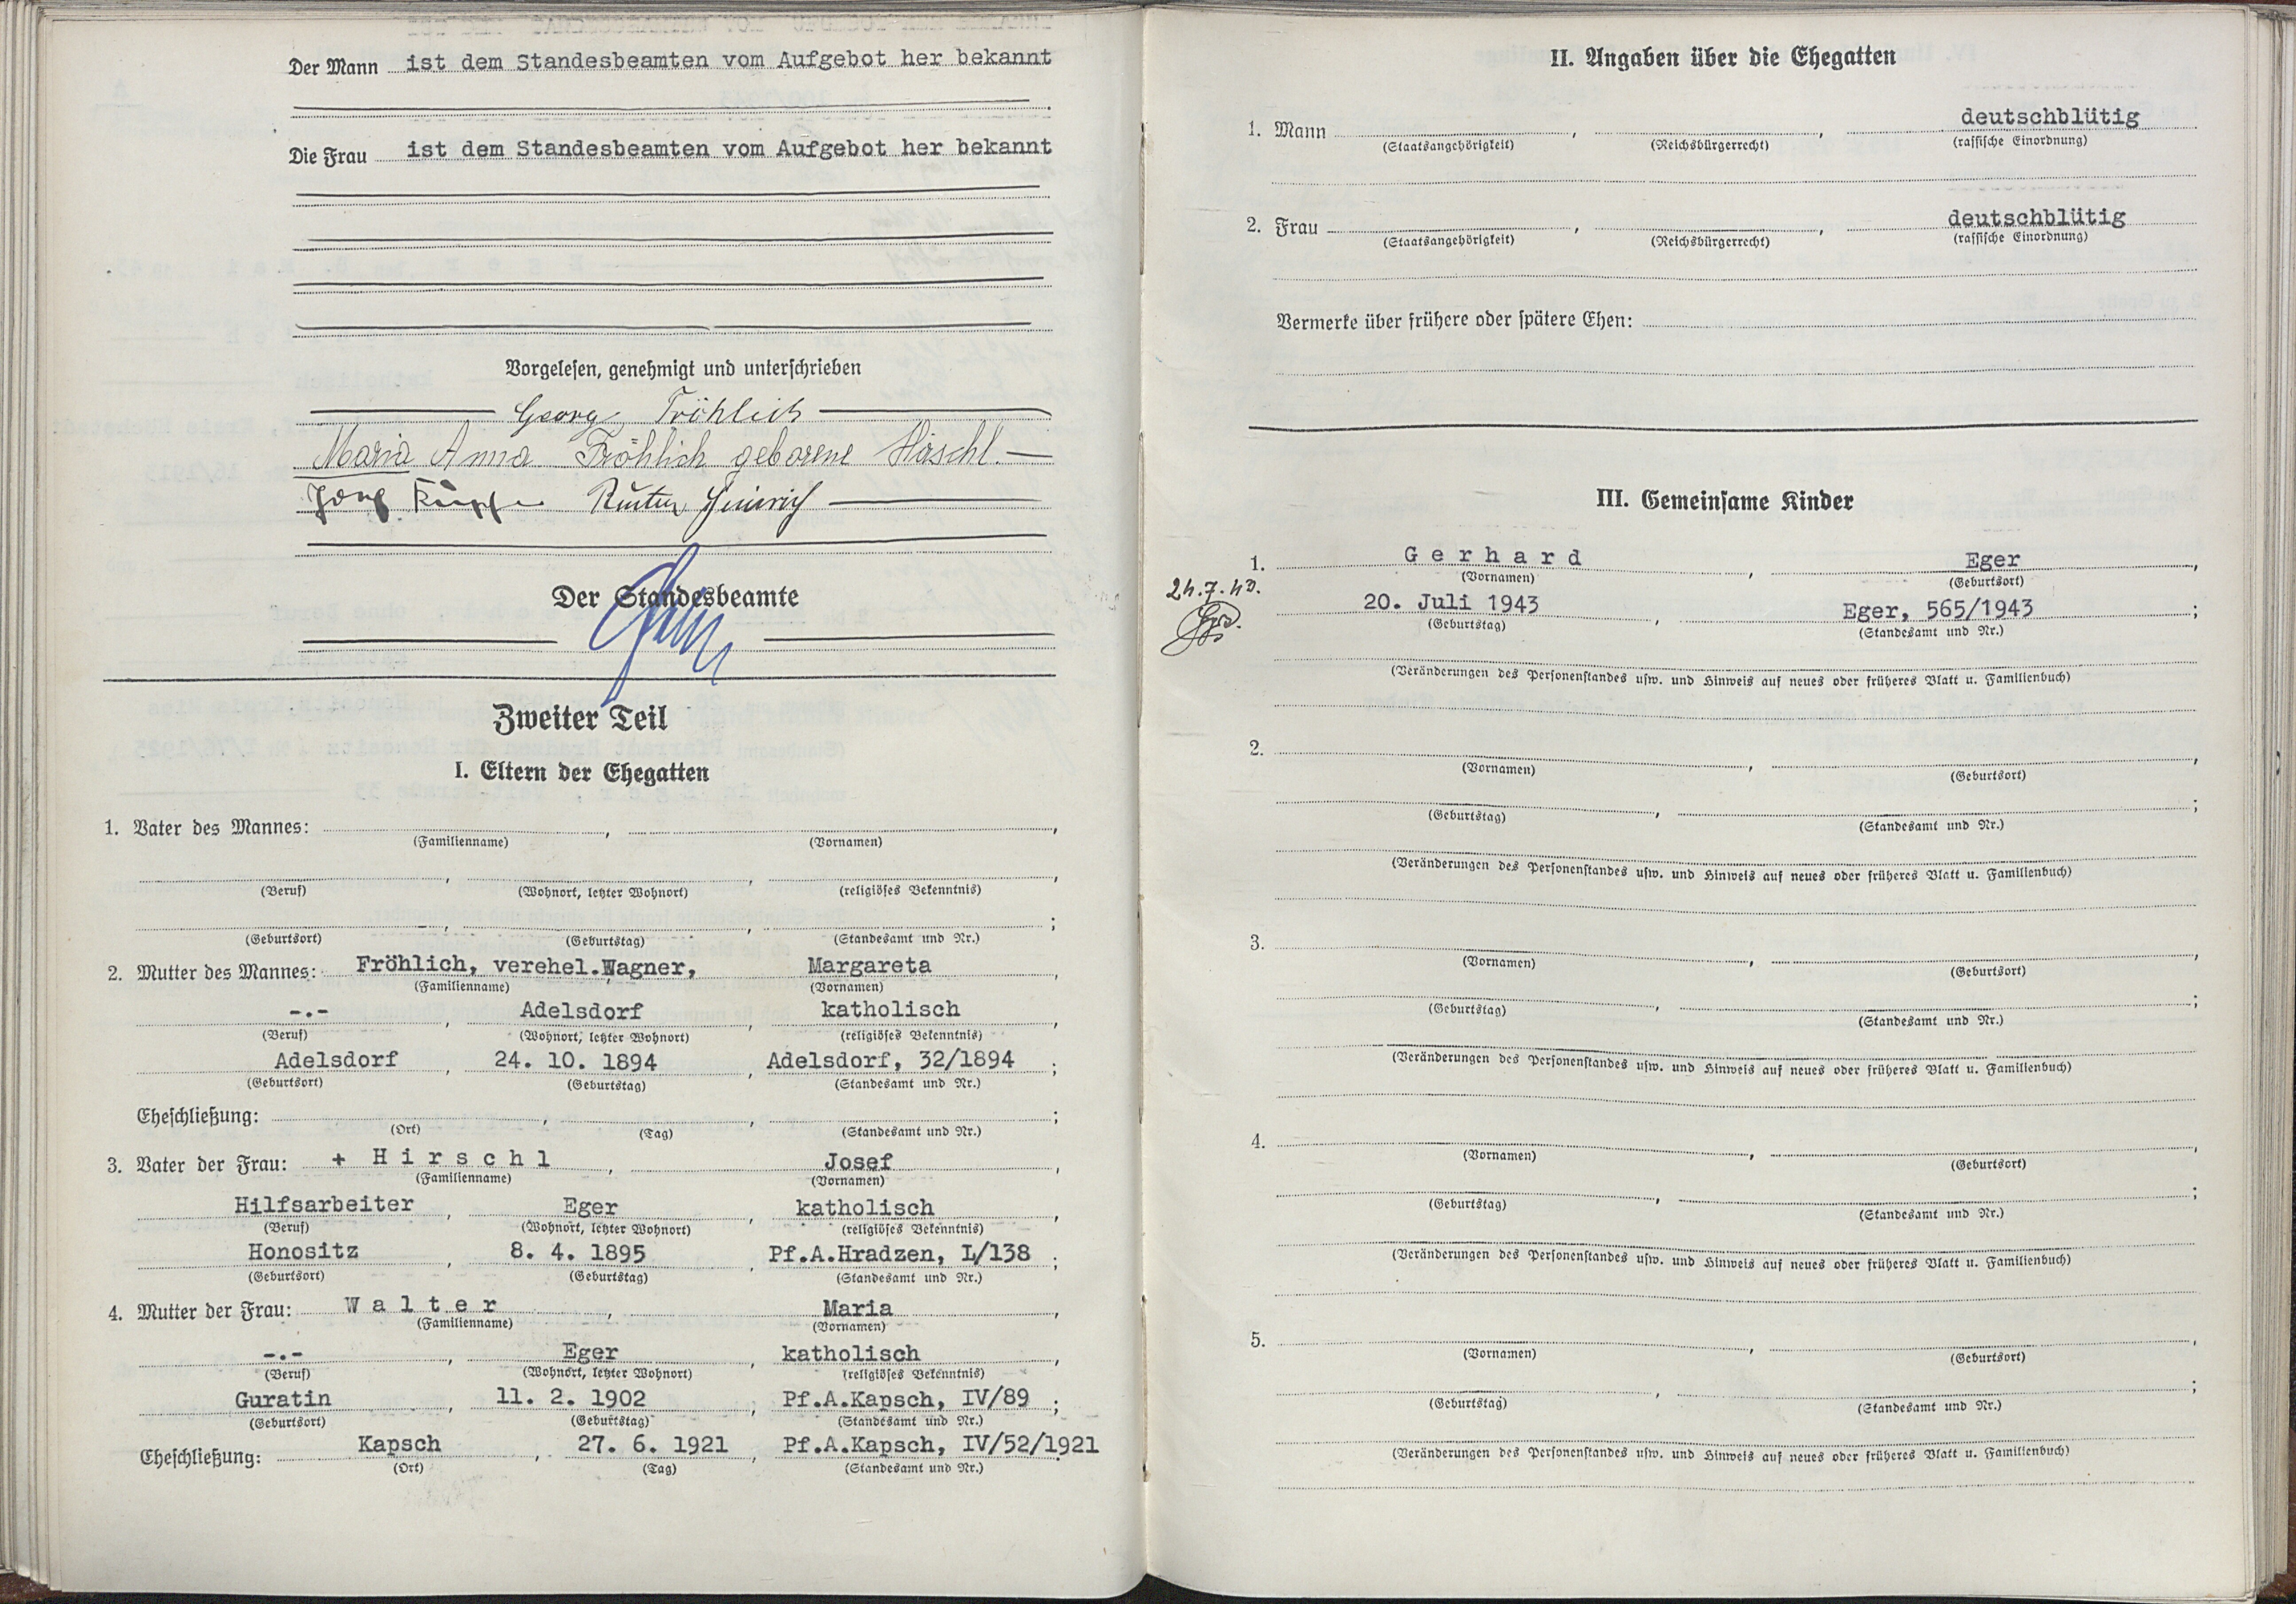 Der Mann ist dem Standesbeamten vom Aufgebot her bekannt
Die Frau ist dem Standesbeamten vom Aufgebot her bekannt
Vorgelesen, genehmigt und unterschrieben
Georg Fröhlich
Maria Anna Fröhlich geborene Hirschl.
Der Standesbeamte
Zweiter Teil
I. Eltern der Ehegatten
1. Vater des Mannes: , ,
(Familienname) (Vornamen)
, , ,
(Beruf) (Wohnort, letzter Wohnort) (religiöses Bekenntnis)
, , ;
(Geburtsort) (Geburtstag) (Standesamt und Nr.)
2. Mutter des Mannes: Fröhlich, verehel.Wagner, Margareta ,
(Familienname) (Vornamen)
-.- , Adelsdorf , katholisch ,
(Beruf) (Wohnort, letzter Wohnort) (religiöses Bekenntnis)
Adelsdorf , 24. 10. 1894 , Adelsdorf, 32/1894 ;
(Geburtsort) (Geburtstag) (Standesamt und Nr.)
Eheschließung: , , ;
(Ort) (Tag) (Standesamt und Nr.)
3. Vater der Frau: + H i r s c h l , Josef ,
(Familienname) (Vornamen)
Hilfsarbeiter , Eger , katholisch ,
(Beruf) (Wohnort, letzter Wohnort) (religiöses Bekenntnis)
Honositz , 8. 4. 1895 , Pf.A.Hradzen, I/138 ;
(Geburtsort) (Geburtstag) (Standesamt und Nr.)
4. Mutter der Frau: W a l t e r , Maria ,
(Familienname) (Vornamen)
-.- , Eger , katholisch ,
(Beruf) (Wohnort, letzter Wohnort) (religiöses Bekenntnis)
Guratin , 11. 2. 1902 , Pf.A.Kapsch, IV/89 ;
(Geburtsort) (Geburtstag) (Standesamt und Nr.)
Eheschließung: Kapsch , 27. 6. 1921 , Pf.A.Kapsch, IV/52/1921
(Ort) (Tag) (Standesamt und Nr.)
II. Angaben über die Ehegatten
1. Mann , , deutschblütig
(Staatsangehörigkeit) (Reichsbürgerrecht) (rassische Einordnung)
2. Frau , , deutschblütig
(Staatsangehörigkeit) (Reichsbürgerrecht) (rassische Einordnung)
Vermerke über frühere oder spätere Ehen:
III. Gemeinsame Kinder
1. G e r h a r d , Eger ,
(Vornamen) (Geburtsort)
24.7.43.
20. Juli 1943 , Eger, 565/1943 ;
(Geburtstag) (Standesamt und Nr.)
(Veränderungen des Personenstandes usw. und Hinweis auf neues oder früheres Blatt u. Familienbuch)
2. , ,
(Vornamen) (Geburtsort)
, ;
(Geburtstag) (Standesamt und Nr.)
(Veränderungen des Personenstandes usw. und Hinweis auf neues oder früheres Blatt u. Familienbuch)
3. , ,
(Vornamen) (Geburtsort)
, ;
(Geburtstag) (Standesamt und Nr.)
(Veränderungen des Personenstandes usw. und Hinweis auf neues oder früheres Blatt u. Familienbuch)
4. , ,
(Vornamen) (Geburtsort)
, ;
(Geburtstag) (Standesamt und Nr.)
(Veränderungen des Personenstandes usw. und Hinweis auf neues oder früheres Blatt u. Familienbuch)
5. , ,
(Vornamen) (Geburtsort)
, ;
(Geburtstag) (Standesamt und Nr.)
(Veränderungen des Personenstandes usw. und Hinweis auf neues oder früheres Blatt u. Familienbuch)